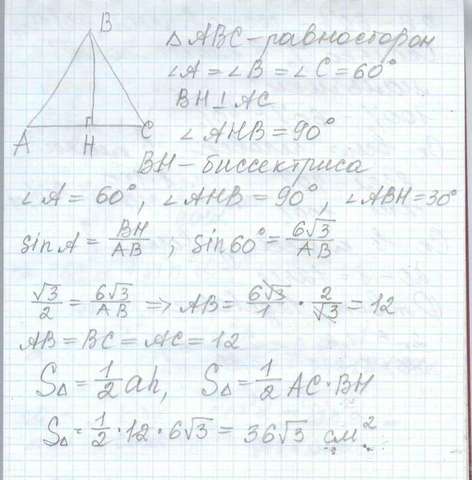 B
A H C
△ABC – равносторон
∠A = ∠B = ∠C = 60°
BH⊥AC
∠AHB = 90°
BH – биссектриса
∠A = 60°, ∠AHB = 90°, ∠ABH = 30°
sin A = BH/AB ; sin 60° = 6√3/AB
√3/2 = 6√3/AB ⇒ AB = 6√3/1 · 2/√3 = 12
AB = BC = AC = 12
S△ = 1/2 ah, S△ = 1/2 AC · BH
S△ = 1/2 · 12 · 6√3 = 36√3 см²